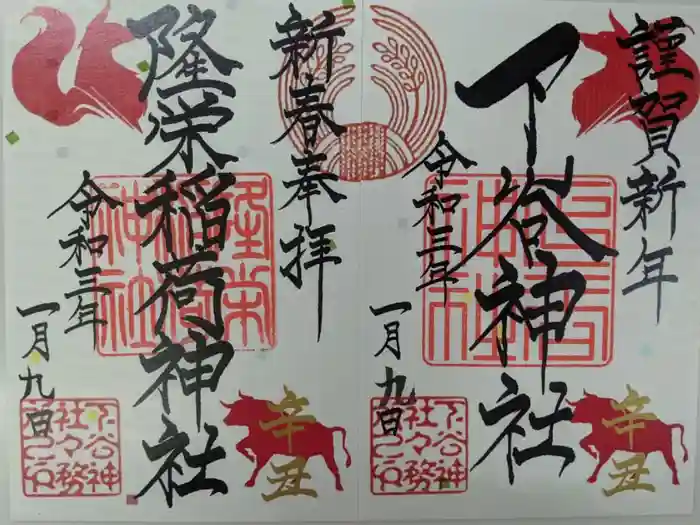 謹賀新年
下谷神社
令和三年
一月九日
下谷神社
辛丑
下谷神社々務之印
新春奉拝
隆栄稲荷神社
令和三年
一月九日
隆栄稲荷神社
辛丑
下谷神社々務之印